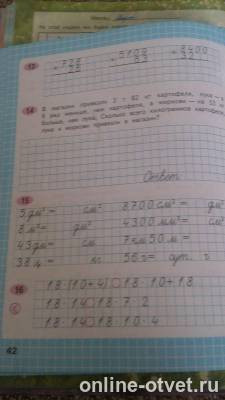 13
728
28
5109
83
8400
32
14
В магазин привезли 2 т 82 кг картофеля, лука —
раз меньше, чем картофеля, а моркови — на 53 кг
больше, чем лука. Сколько всего килограммов картофеля,
лука и моркови привезли в магазин?
Ответ
15
5 дм² = см² 8700 см² = дм²
8 м² = дм² 4300 мм² = см²
43 дм = см 7 км 50 м = м
38 ч 56 ч = сут. ч
16
18 · (10+4) 18 · 10 + 18
18 · 14 18 · 7 · 2
18 · 14 18 · 10 · 4
42
online-otvet.ru